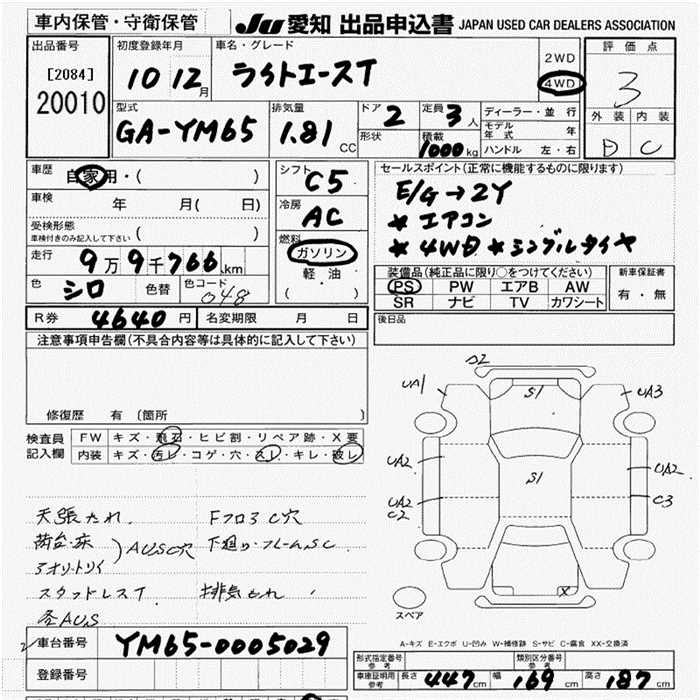 車内保管・守衛保管
JU 愛知 出品申込書 JAPAN USED CAR DEALERS ASSOCIATION
出品番号
[2084]
20010
初度登録年月
10 12月
車名・グレード
ライトエースT
2WD
4WD
評価点
3
外装 内装
D C
型式
GA-YM65
排気量
1.81 CC
ドア
2
定員
3人
形状
積載
1000kg
ディーラー・並行
モデル年式 年
ハンドル 左・右
車歴
自家用・( )
車検 年 月( 日)
受検形態
車検付きのみ記入して下さい ( )
走行
9万9千766km
色
シロ
色替
色コード
048
シフト
C5
冷房
AC
燃料
ガソリン
軽油
( )
セールスポイント(正常に機能するものに限ります)
E/G→2Y
*エアコン
*4WD *シングルタイヤ
装備品(純正品に限り○をつけてください)
PS PW エアB AW
SR ナビ TV カワシート
新車保証書
有・無
R券 4640円
名変期限 月 日
後日品
注意事項申告欄(不具合内容等は具体的に記入して下さい)
修復歴 有 〔箇所 〕
検査員記入欄
FW キズ・飛石・ヒビ割・リペア跡・X要
内装 キズ・汚レ・コゲ・穴・スレ・キレ・破レ
天張たれ
荷台・床
アオリ・トリイ
)AUSC穴
スタッドレスT
各AUS
Fフロ3C穴
下廻り・フレームSC
排気もれ
S2
UA1
S1
UA3
UA2
S1
UA2
UA2
C2
C3
X
スペア
A-キズ E-エクボ U-凹み W-補修跡 S-サビ C-腐食 XX-交換済
車台番号
YM65-0005029
登録番号
形式指定番号 参考
類別区分番号 参考
車庫証明用 参考
長さ 447cm 幅 169cm 高さ 187cm